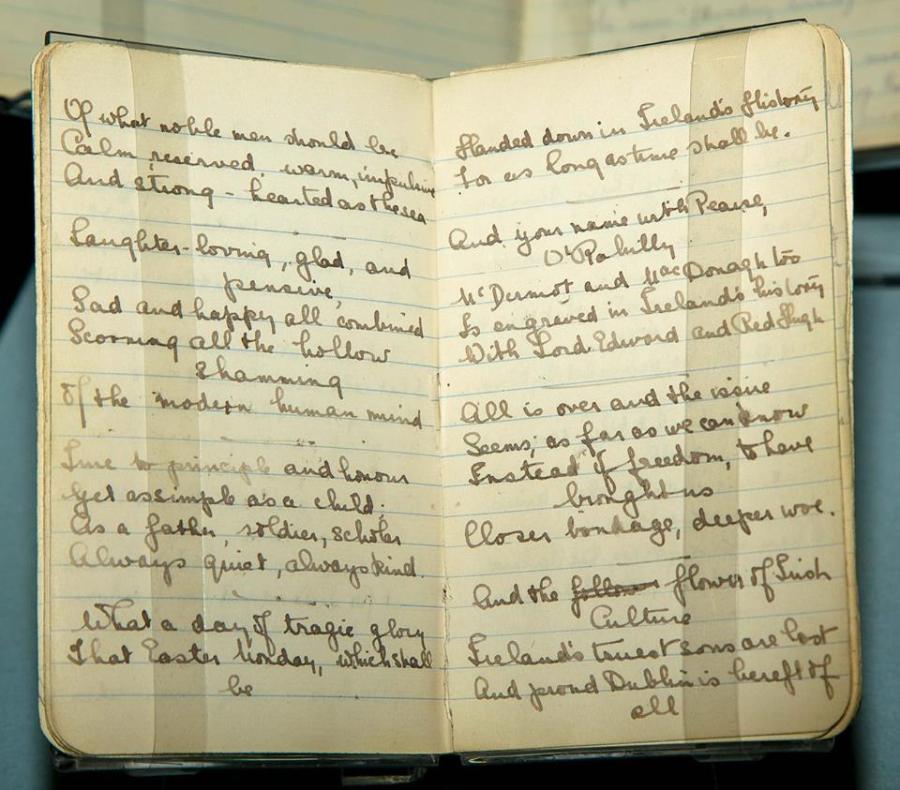 Of what noble men should be
Calm reserved, warm, impulsive
And strong - hearted as the sea
Laughter-loving, glad, and
pensive,
Sad and happy all combined
Scorning all the hollow
shamming
Of the modern human mind
True to principle and honour
Yet as simple as a child.
As a father, soldier, scholar
Always quiet, always kind.
What a day of tragic glory
That Easter Monday, which shall
be
Handed down in Ireland's History
For as long as time shall be.
And your name with Pearse,
O'Rahilly
McDermot and MacDonagh too
Is engraved in Ireland's history
With Lord Edward and Red Hugh
All is over and the issue
Seems, as far as we can know
Instead of freedom, to have
brought us
Closer bondage, deeper woe.
And the follow flower of Irish
Culture
Ireland's truest sons are lost
And proud Dublin is bereft of
all